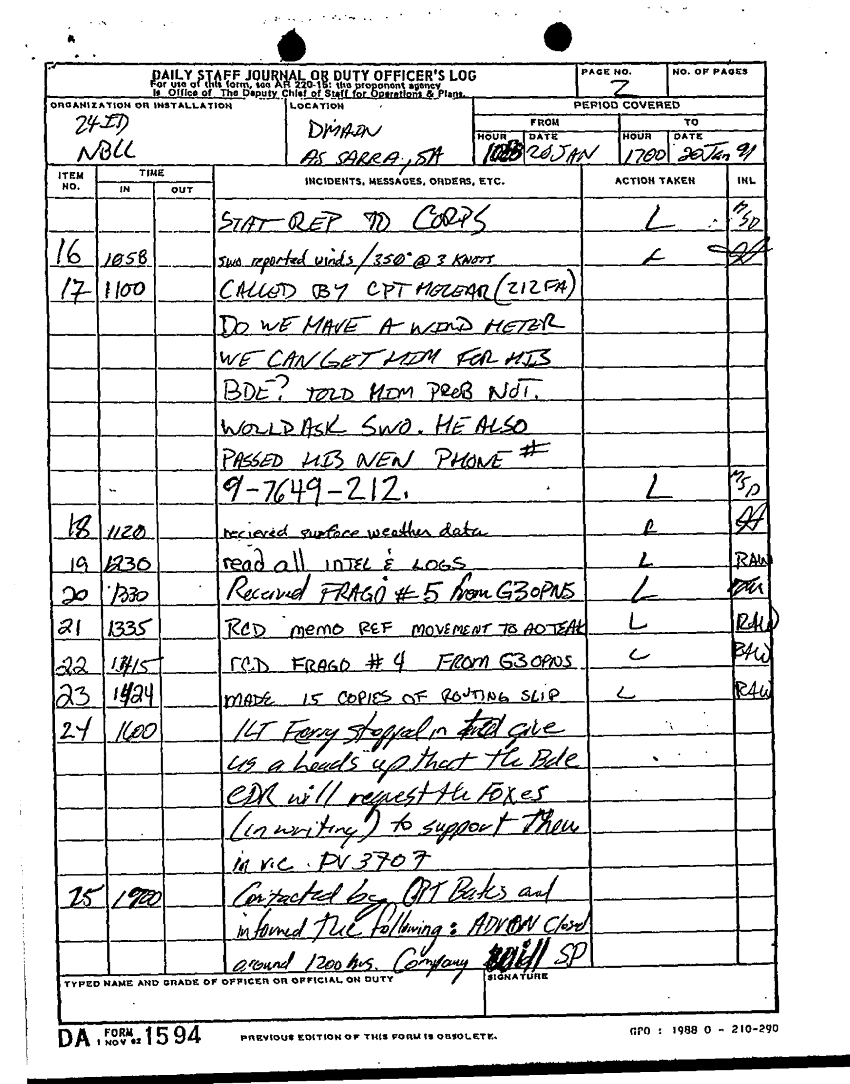 DAILY STAFF JOURNAL OR DUTY OFFICER'S LOG
For use of this form, see AR 220-15; the proponent agency
is Office of The Deputy Chief of Staff for Operations & Plans.
PAGE NO.
2
NO. OF PAGES
ORGANIZATION OR INSTALLATION
24 ID
NBCC
LOCATION
DMAIN
AS SARRA, SA
PERIOD COVERED
FROM
TO
HOUR
DATE
20 JAN
HOUR
1700
DATE
20 Jan 91
ITEM NO.
TIME
IN
OUT
INCIDENTS, MESSAGES, ORDERS, ETC.
ACTION TAKEN
INL
STAT REP TO CORPS L
16 1058 SWO reported winds / 350° @ 3 KNOTS L
17 1100 CALLED BY CPT (212 FA)
DO WE HAVE A WIND METER
WE CAN GET HIM FOR HIS
BDE? TOLD HIM PROB NOT.
WOULD ASK SWO. HE ALSO
PASSED HIS NEW PHONE #
9-7649-212. L
18 1120 recieved surface weather data L
19 1230 read all INTEL & LOGS L RAW
20 1330 Received FRAGO # 5 from G3 OPNS L
21 1335 RCD memo REF MOVEMENT TO AO TEAK L RAW
22 1415 rCD FRAGO # 4 FROM G3 OPNS L RAW
23 1424 MADE 15 COPIES OF ROUTING SLIP L RAW
24 1600 1LT Ferry stopped in give
us a heads up that the Bde
CDR will request the Foxes
(in writing) to support them
in vic. PV 3707
25 1700 Contacted by CPT Bates and
informed the following: ADVON Closed
around 1200 hrs. Company will SP
TYPED NAME AND GRADE OF OFFICER OR OFFICIAL ON DUTY
SIGNATURE
DA FORM 1594
1 NOV 62
PREVIOUS EDITION OF THIS FORM IS OBSOLETE.
GPO : 1988 O - 210-290